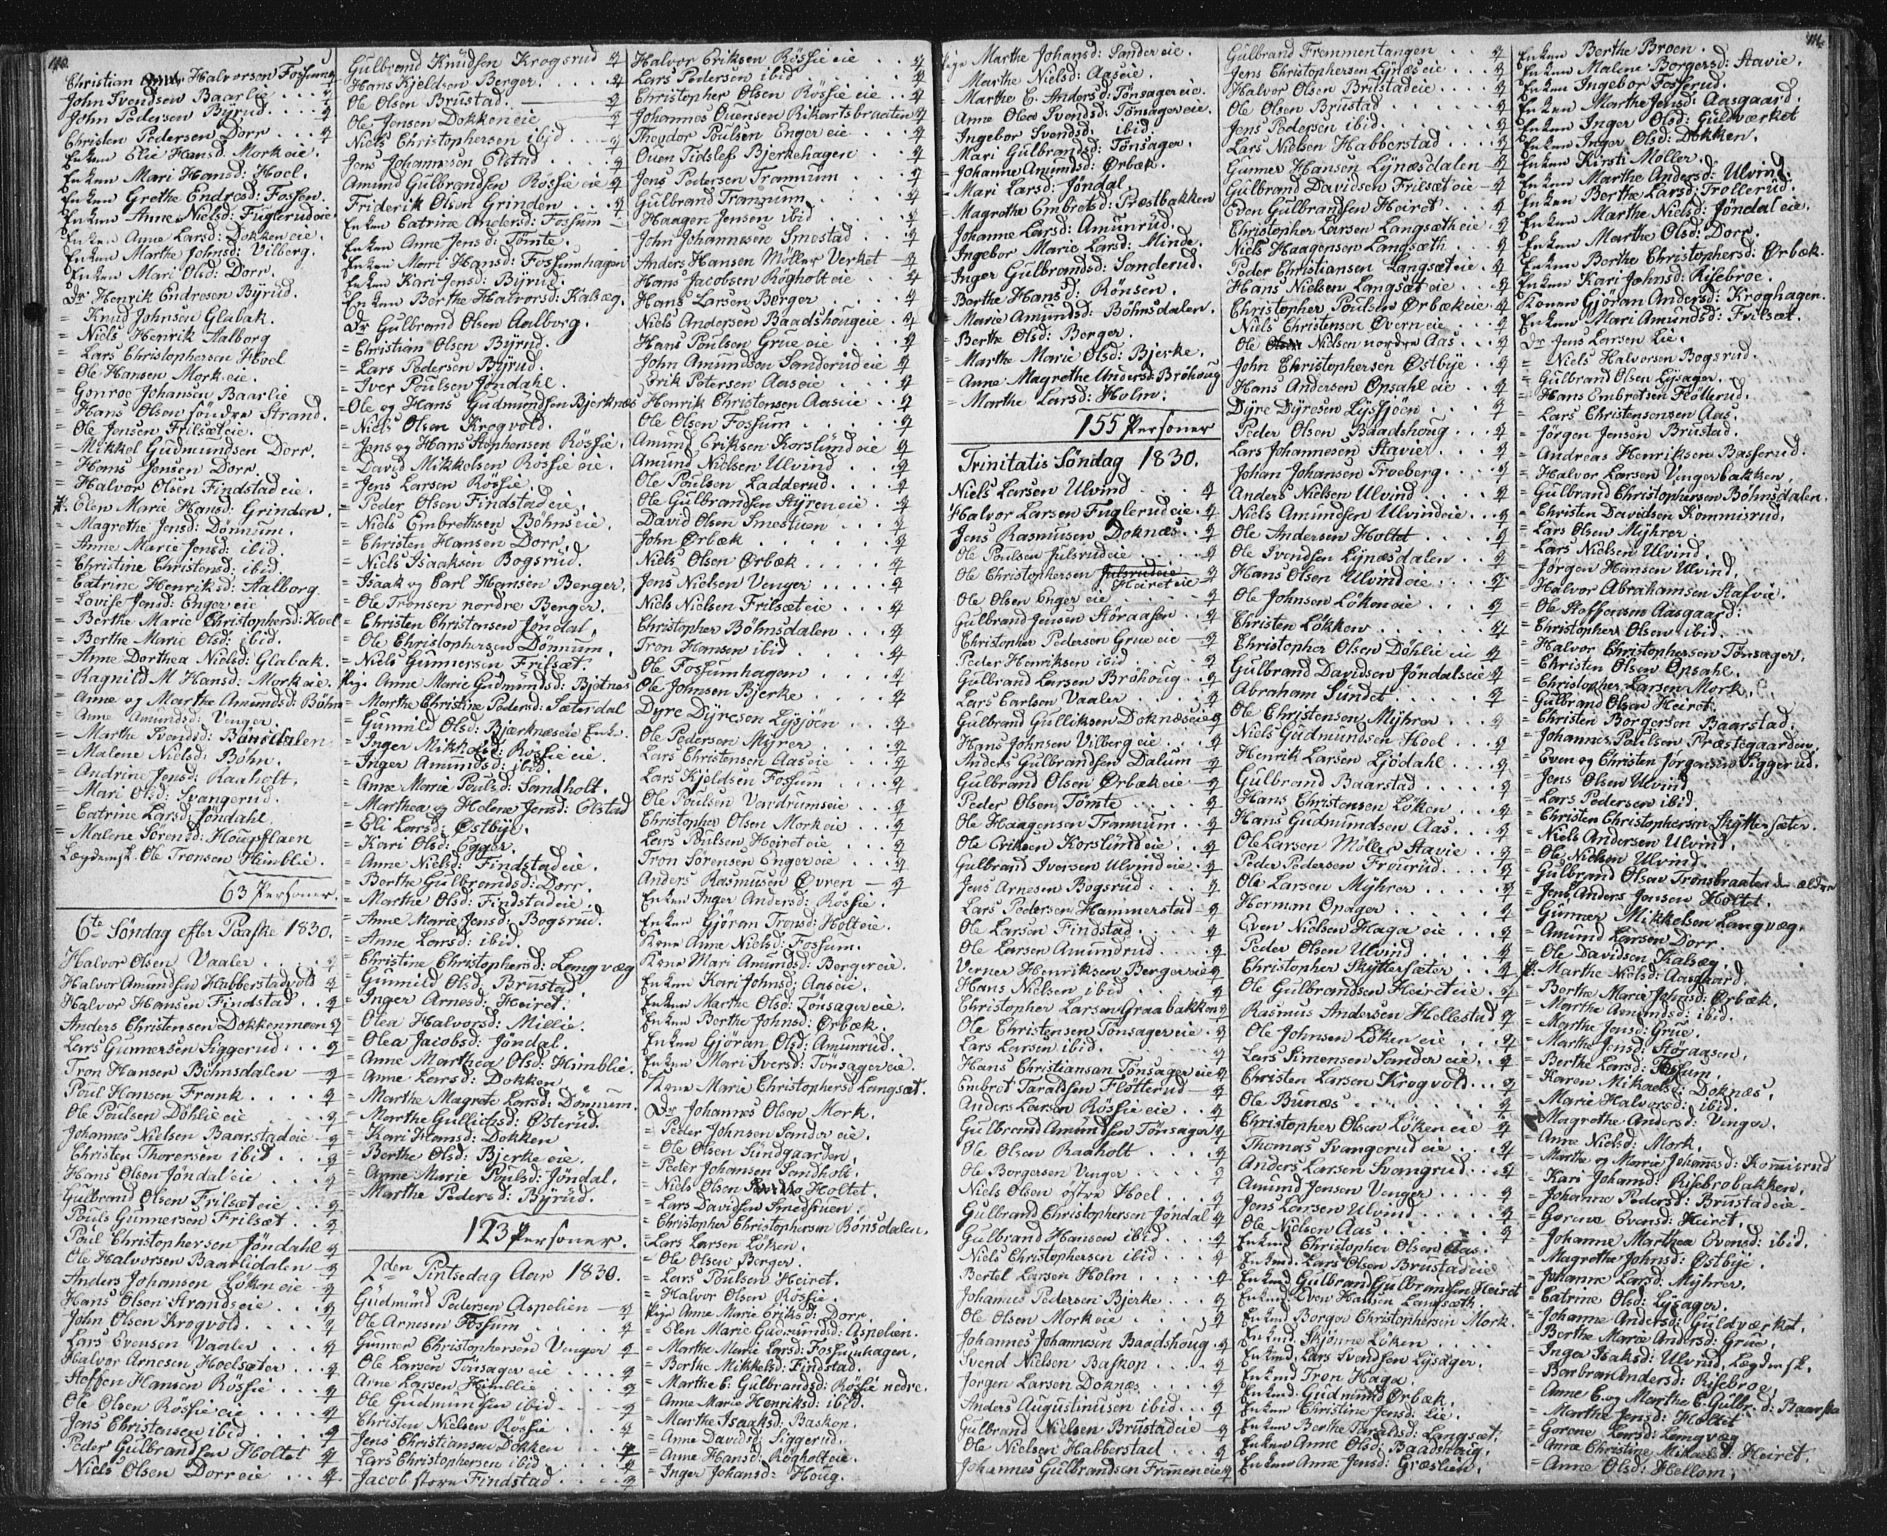 110.
Christian Halvorsen Fossum
John Svendsen Baarlie
John Pedersen Byrud
Christen Pedersen Dorr
Enken Elie Hansd: Mork eie.
Enken Mari Hansd: Hoel.
Enken Grethe Endresd: Fossen.
Enken Anne Nielsd: Fuglerud eie
Enken Anne Larsd: Dokken eie.
Enken Marthe Johnsd: Vilberg.
Enken Mari Olsd: Dorr.
Dr Henrik Endresen Byrud.
= Knud Johnsen Glabak.
= Niels Henrik Aalborg
= Lars Christophersen Hoel
= Ole Hansen Mork eie.
= Johansen Baarlie
= Hans Olsen søndre Strand.
= Ole Jensen Frilsæt eie.
= Mikkel Gudmundsen Dorr.
= Hans Jensen Dorr.
= Halvor Olsen Findstad eie.
P. Elen Marie Hansd: Grinden.
= Magrethe Jensd: Dønnum.
= Anne Marie Jensd: ibid.
= Christine Christensd: ibid.
= Catrine Henriksd: Aalborg
= Lovise Jensd: Enger eie
= Berthe Marie Christophersd: Hoel
= Berthe Marie Olsd: ibid.
= Anne Dorthea Nielsd: Glabak.
= Ragnild M Hansd: Mork eie.
= Anne og Marthe Amundsd: Bøhn
= Anne Amundsd: Venger.
= Marthe Svendsd: Bønsdalen
= Malene Nielsd: Bøhn.
= Andrine Jensd: Raaholt.
= Mari Olsd: Svangerud.
= Catrine Larsd: Jøndahl.
= Malene Sørensd:
Lægdemsk. Ole Tronsen Himblie.
63 Personer.
6te Søndag efter Paaske 1830.
Halvor Olsen Vaaler
Halvor Amundsen Habberstadvold
Halvor Hansen Findstad
Anders Christensen Dokkenmoen
Lars Gunnersen Siggerud
Tron Hansen Bøhnsdalen
Poul Hansen Frank
Ole Poulsen Døhlie eie
Johannes Nielsen Baarstad eie
Christen Thoresen ibid
Hans Olsen Jøndal eie
Gulbrand Olsen Frilsæt eie
Pouls Gunnersen Frilsæt
Poul Christophersen Jøndahl
Ole Halvorsen Baarlidalen
Anders Johansen Løken eie
Hans Olsen Strands eie
John Olsen Krogvold
Lars Evensen Vaaler
Halvor Arnesen Hoelsæter
Steffen Hansen Røssie
Ole Olsen Røssie eie
Jens Christensen ibid
Peder Gulbrandsen Holtet
Niels Olsen Dorr eie
Gulbrand Knudsen Krogsrud
Hans Kjeldsen Berger
Ole Olsen Brustad.
Ole Jensen Dokken eie
Niels Christophersen ibid
Jens Johannesen Olstad
Amund Gulbrandsen Røssie eie
Friderik Olsen Grinden
Enken Catrine Andersd: Fossum
Enken Anne Jensd: Tømte.
Enken Mari Hansd: Fossumhagen
Enken Kari Jensd: Byrud.
Enken Berthe Halvorsd: Kalsæg.
Dr Gulbrand Olsen Aalborg.
= Christian Olsen Byrud.
= Lars Pedersen Byrud.
= Iver Poulsen Jøndahl.
= Ole og Hans Gudmundsen Bjerknæs
= Niels Olsen Krogvold.
= Jens og Hans Stephensen Røssie.
= David Mikkelsen Røssie eie.
= Jens Larsen Røssie.
= Peder Olsen Findstad eie.
= Niels Embrethsen Bøhns eie.
= Christen Hansen Dorr.
= Niels Isaaksen Bogsrud.
= Isaak og Carl Hansen Berger.
= Ole Tronsen nordre Berger.
= Christen Christensen Jøndal.
= Ole Christophersen Dønnum.
= Niels Gunnersen Frilsæt.
Pige Anne Marie Gudmundsd: Bjøtnes
= Marthe Christine Pedersd: Sæterdal
= Gunnild Olsd: Bjerknæs eie Enke.
= Inger Mikkelsd: Røssie eie.
= Inger Amundsd: ibid.
= Anne Marie Poulsd: Sandholt.
= Marthea og Helene Jensd: Olstad
= Eli Larsd: Østbye.
= Kari Olsd: Egger.
= Anne Nielsd: Findstad eie.
= Berthe Gulbrandsd: Dorr.
= Marthe Olsd: Findstad eie.
= Anne Marie Jensd: Bogsrud.
= Anne Larsd: ibid.
= Christine Christophersd: Langvæg
= Gunnild Olsd: Brustad.
= Inger Arnesd: Heiret.
= Olea Halvorsd: Millie.
= Olea Jacobsd: Jøndal.
= Anne Marthea Olsd: Himblie.
= Anne Larsd: Dokken.
= Marthe Magrete Larsd: Dønnum.
= Marthe Gullichsd: Østerud.
= Kari Hansd: Dokken
= Berthe Olsd: Bjerke eie.
= Anne Marie Poulsd: Jøndal.
= Marthe Pedersd: Byrud.
123 Personer.
2den Pintsedag Aar 1830.
Gudmund Pedersen Aspelien
Ole Arnesen Fossum
Gunner Christophersen Venger
Ole Larsen Tønsager eie
Arne Larsen Himblie
Ole Gudmundsen ibid
Christen Nielsen Røssie
Jens Christiansen Dokken
Lars Christophersen ibid
Jacob store Findstad
Halvor Eriksen Røssie eie
Lars Pedersen ibid
Christopher Olsen Røssie eie
Johannes Ouensen Rikartsbraaten
Theodor Poulsen Enger eie
Ouen Tidslef Bjerkehagen
Jens Pedersen Trannum
Gulbrand Trannum
Haagen Jensen ibid
John Johannesen Smestad
Anders Hansen Møller Verket
Hans Jacobsen Rogholt eie
Hans Larsen Berger
Niels Andersen Baadshoug eie
Hans Poulsen Grue eie
John Amundsen Sanderud eie
Erik Petersen Aas eie
Henrik Christensen Aas eie
Ole Olsen Fossum
Amund Eriksen Korslund eie
Amund Nielsen Ulvind
Ole Poulsen Ladderud
Ole Gulbrandsen Styren eie
David Olsen Smestuen
John Ørbæk
Niels Olsen Ørbæk
Jens Nielsen Venger
Niels Nielsen Frilsæt eie
Christopher Bøhnsdalen
Tron Hansen ibid
Ole Fossumhagen
Ole Johnsen Bjerke
Dyre Dyresen Lysjøen
Ole Pedersen Myrer
Lars Christensen Aas eie
Lars Kjeldsen Fossum
Ole Poulsen Vardrums eie
Christopher Olsen Mork eie
Lars Poulsen Heiret eie
Tron Sørensen Enger eie
Anders Rasmusen Øvren
Enken Inger Andersd: Røssie.
Enken Gjøran Tronsd: Holt eie.
Kone Anne Nielsd: Fossum.
Kone Mari Amundsd: Berger eie.
Enken Kari Johnsd: Aas eie.
Enken Marthe Olsd: Tønsager eie.
Enken Berthe Johnsd: Ørbæk.
Enken Gjøran Olsd: Amunrud.
Enken Mari Iversd: Tønsager eie.
Kone Marie Christophersd Langsæt.
Dr Johannes Olsen Mork.
= Peder Johnsen Sander eie.
= Ole Olsen Sundgaarden.
= Peder Johansen Sandholt.
= Niels Olsen Holtet.
= Lars Davidsen Smedstuen.
= Christopher Christophersen Bønsdalen.
= Lars Larsen Løken.
= Ole Olsen Berger.
= Lars Poulsen Heiret.
= Halvor Olsen Røssie.
Pige Anne Marie Eriksd: Dorr.
= Elen Marie Gudmundsd: Aspelien.
= Marthe Marie Larsd: Fossumhagen.
= Berthe Mikkelsd: Findstad.
= Marthe C: Gulbrandsd: Røssie nedre.
= Anne Marie Henriksd: ibid.
= Marthe Isaaksd: Baskop.
= Anne Davidsd: Siggerud.
= Anne Hansd: Rogholt eie.
= Inger Johansd: Houg.
111.
Pige Marthe Johansd: Sander eie.
= Marthe Nielsd: Aas eie.
= Marthe C. Andersd: Tønsager eie.
= Anne Olea Svendsd: Tønsager eie.
= Ingebor Svendsd: ibid.
= Mari Gulbrandsd: Tønsager.
= Johanne Amundsd: Ørbæk.
= Mari Larsd: Jøndal.
= Magrethe Embretsd: Præstbakken
= Johanne Larsd: Amunrud.
= Ingebor Marie Larsd: Minde.
= Inger Gulbrandsd: Sanderud.
= Berthe Hansd: Rørsen.
= Marie Amundsd: Bøhnsdalen.
= Berthe Olsd: Berger.
= Marthe Marie Olsd: Bjerke.
= Anne Magrethe Andersd: Brøhoug
= Marthe Larsd: Holm.
155 Personer
Trinitatis Søndag 1830.
Niels Larsen Ulvind
Halvor Larsen Fuglerud eie.
Jens Rasmusen Doknæs.
Ole Poulsen Julsrud eie
Ole Christophersen Julsrud eie
Heiret eie
Ole Olsen Enger eie
Gulbrand Jensen Støraasen
Christopher Pedersen Grue eie
Peder Henriksen ibid
Gulbrand Larsen Brøhoug
Lars Carlsen Vaaler
Gulbrand Gulliksen Doknæs eie
Hans Johnsen Vilberg eie
Anders Gulbrandsen Dalum
Gulbrand Olsen Ørbæk eie
Peder Olsen Tømte
Ole Haagensen Trannum
Ole Eriksen Korslund eie
Gulbrand Iversen Ulvind eie
Jens Arnesen Bogsrud
Lars Pedersen Hammerstad
Ole Larsen Findstad
Ole Larsen Amundrud
Verner Henriksen Berger eie
Hans Nielsen ibid
Christopher Larsen Graabakken
Ole Christensen Tønsager eie
Lars Larsen ibid.
Hans Christiansen Tønsager eie
Embret Taraldsen Fløtterud
Anders Larsen Røssie eie
Gulbrand Amundsen Tønsager
Ole Olsen Raaholt
Ole Borgersen Venger
Niels Olsen østre Hoel
Gulbrand Christophersen Jøndal
Gulbrand Hansen ibid
Niels Christophersen ibid
Bertel Larsen Holm
Johannes Pedersen Bjerke
Ole Olsen Mork eie
Johannes Johannesen Baadshoug
Svend Nielsen Baskop
Jørgen Larsen Doknæs
Anders Augustinusen ibid
Gulbrand Nielsen Brustad eie
Ole Nielsen Habberstad
Johannes Gulbrandsen Franen eie
Gulbrand Fremmentangen
Jens Christophersen Lynæs eie
Halvor Olsen Brustad eie
Ole Olsen Brustad
Jens Pedersen ibid
Lars Nielsen Habberstad
Gunner Hansen Lynæsdalen
Gulbrand Davidsen Frilsæt eie
Even Gulbrandsen Heiret
Christopher Larsen Langsæth eie
Niels Haagensen Langsæth
Peder Christiansen Langsæt eie
Hans Nielsen Langsæt eie
Christopher Poulsen Ørbæk eie
Niels Christensen Øvern eie
Ole Olsen Nielsen nordre Aas
John Christophersen Østbye
Hans Andersen Opsahl eie
Dyre Dyresen Lysjøen
Peder Olsen Baadshoug
Lars Johannesen Stavie
Johan Johansen Troeberg
Anders Nielsen Ulvind
Niels Amundsen Ulvind eie
Ole Andersen Holtet
Ole Svendsen Lynæsdalen
Hans Olsen Ulvind eie
Ole Johnsen Løken eie
Christen Løkken
Christopher Olsen Døhlie eie
Gulbrand Davidsen Jøndals eie
Abraham Sundet
Ole Christensen Myhrer
Niels Gudmundsen Hoel
Henrik Larsen Ljødahl
Gulbrand Baarstad
Hans Christensen Løken
Hans Gudmundsen Aas
Ole Larsen Møller Stavie
Peder Pedersen Frourud
Ole Larsen Myhrer
Herman Onager
Even Nielsen Haga eie
Peder Olsen Ulvind
Christopher Skyttersæter
Ole Gulbrandsen Heiret eie
Rasmus Andersen Hellestad
Ole Johnsen Løken eie
Lars Simensen Sander eie
Christen Larsen Krogvold
Ole Bunæs
Christopher Olsen Løken eie
Thomas Svangerud eie
Anders Larsen Svangrud
Amund Jensen Venger
Jens Larsen Ulvind
Ole Nielsen Aas
Enkmd. Christopher Olsen Aas.
Enkmd. Lars Olsen Brustad eie
Enkmd Gulbrand Gulbrandsen Heiret
Enkmd Even Hansen Langsæth.
Enkmd Borger Christophersen Mork.
Enkmd. Skjønne Løken
Enkmd. Lars Svendsen Lysager.
Enkmd Tron Haga.
Enkmd. Gudmund Ørbæk.
Enken Christine Jensd: Lie.
Enken Berthe Taraldsd: Langsæt.
Enken Anne Olsd: Baadshoug.
Enken Anne Jensd: Græslien.
Enken Berthe Broen.
Enken Malene Borgersd: Stavie.
Enken Ingebor Fosserud.
Enken Marthe Jensd: Aasgaard.
Enken Inger Olsd: Guldværket
Enken Inger Olsd: Dokken.
Enken Kirsti Møller.
Enken Marthe Andersd: Ulvind.
Enken Berthe Larsd: Trollerud.
Enken Marthe Nielsd: Jøndal eie.
Enken Marthe Olsd: Dorr.
Enken Berthe Christophersd: Ørbæk.
Enken Kari Johnsd: Risebroe.
Konen Gjøran Andersd: Kroghagen.
Enken Mari Amundsd: Frilsæt.
Dr Jens Larsen Lie.
= Niels Halvorsen Bogsrud.
= Gulbrand Olsen Lysager.
= Hans Embretsen Fløtterud.
= Lars Christensensen Aas.
= Jørgen Jensen Brustad.
= Andreas Henriksen Basserud.
= Halvor Larsen Vengerbakken.
= Gulbrand Christophersen Bøhnsdalen.
= Christen Davidsen Kommisrud.
= Lars Olsen Myhrer.
= Lars Nielsen Ulvind.
= Jørgen Hansen Ulvind.
= Halvor Abrahamsen Stafvie.
= Ole Steffensen Aasgaard.
= Christopher Olsen ibid.
= Halvor Christophersen Tønsager.
= Christen Olsen Opsahl.
= Christopher Larsen Mork.
= Gulbrand Olsen Heiret.
= Christen Borgersen Baarstad.
= Johannes Poulsen Præstegaarden.
= Even og Christen Jørgensen Siggerud.
= Jens Olsen Ulvind
= Lars Pedersen ibid.
= Christen Christophersen Skyttersæter.
= Niels Andersen Ulvind.
= Ole Nielsen Ulvind.
= Gulbrand Olsen Tronsbraaten den ældre
= Jens Anders Jensen Holtet.
= Gunner Mikkelsen Langvæg.
= Amund Larsen Dorr.
= Ole Davidsen Kalsæg.
P: Marthe Nielsd: Aasgaard.
= Berthe Marie Johnsd: Ørbæk.
= Marthe Amundsd: ibid.
= Marthe Jensd: Grue.
= Marthe Jensd: Støraasen.
= Berthe Larsd: Fossum.
= Karen Mikaelsd: Doknæs.
= Marie Halvorsd: ibid.
= Magrethe Andersd: Venger.
= Anne Nielsd: Mork.
= Marthe og Marie Johannesd: Komisrud
= Kari Johansd: Risebrobakken.
= Johanne Pedersd: Brustad eie.
= Gorine Evensd: Heiret.
= Johanne Marthea Evensd: ibid.
= Magrethe Johnsd: Østbye.
= Johanne Larsd: Myhrer.
= Catrine Olsd: Lysager.
= Johanne Andersd: Guldværket.
= Berthe Marie Andersd: Grue.
= Inger Isaksd: Ulvind, Lægdemsk.
= Barbra Andersd: Risebroe.
= Anne C. og Marthe C. Gulbr.d: Baarsta
= Marthe Jensd: Holtet
= Gorene Larsd: Langvæg
= Anne Christine Mikaelsd: Heiret.
= Anne Olsd: Hellom.